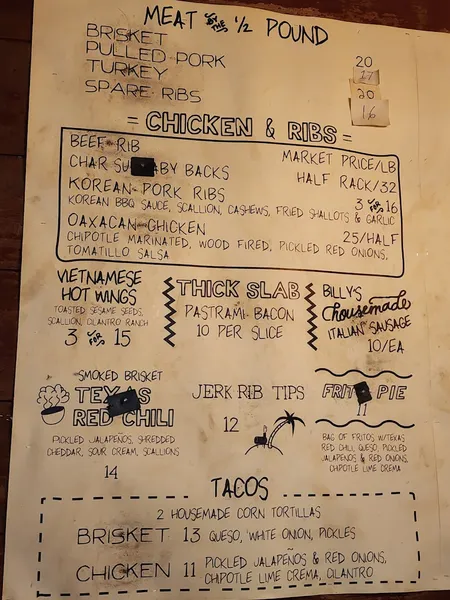 MEAT BY THE 1/2 POUND
BRISKET 20
PULLED PORK 17
TURKEY 20
SPARE RIBS 16
= CHICKEN & RIBS =
BEEF RIB MARKET PRICE/LB
CHAR BACKS HALF RACK/32
KOREAN PORK RIBS 3 FOR 16
KOREAN BBQ SAUCE, SCALLION, CASHEWS, FRIED SHALLOTS & GARLIC
OAXACAN CHICKEN 25/HALF
CHIPOTLE MARINATED, WOOD FIRED, PICKLED RED ONIONS,
TOMATILLO SALSA
VIETNAMESE
HOT WINGS
TOASTED SESAME SEEDS,
SCALLION, CILANTRO RANCH
3 FOR 15
THICK SLAB
PASTRAMI BACON
10 PER SLICE
BILLYS
housemade
ITALIAN SAUSAGE
10/EA
SMOKED BRISKET
TEXAS
RED CHILI
PICKLED JALAPEÑOS, SHREDDED
CHEDDAR, SOUR CREAM, SCALLIONS
14
JERK RIB TIPS
12
FRITO PIE
11
BAG OF FRITOS W/TEXAS
RED CHILI, QUESO, PICKLED
JALAPEÑOS & RED ONIONS,
CHIPOTLE LIME CREMA
TACOS
2 HOUSEMADE CORN TORTILLAS
BRISKET 13 QUESO, WHITE ONION, PICKLES
CHICKEN 11 PICKLED JALAPEÑOS & RED ONIONS,
CHIPOTLE LIME CREMA, CILANTRO